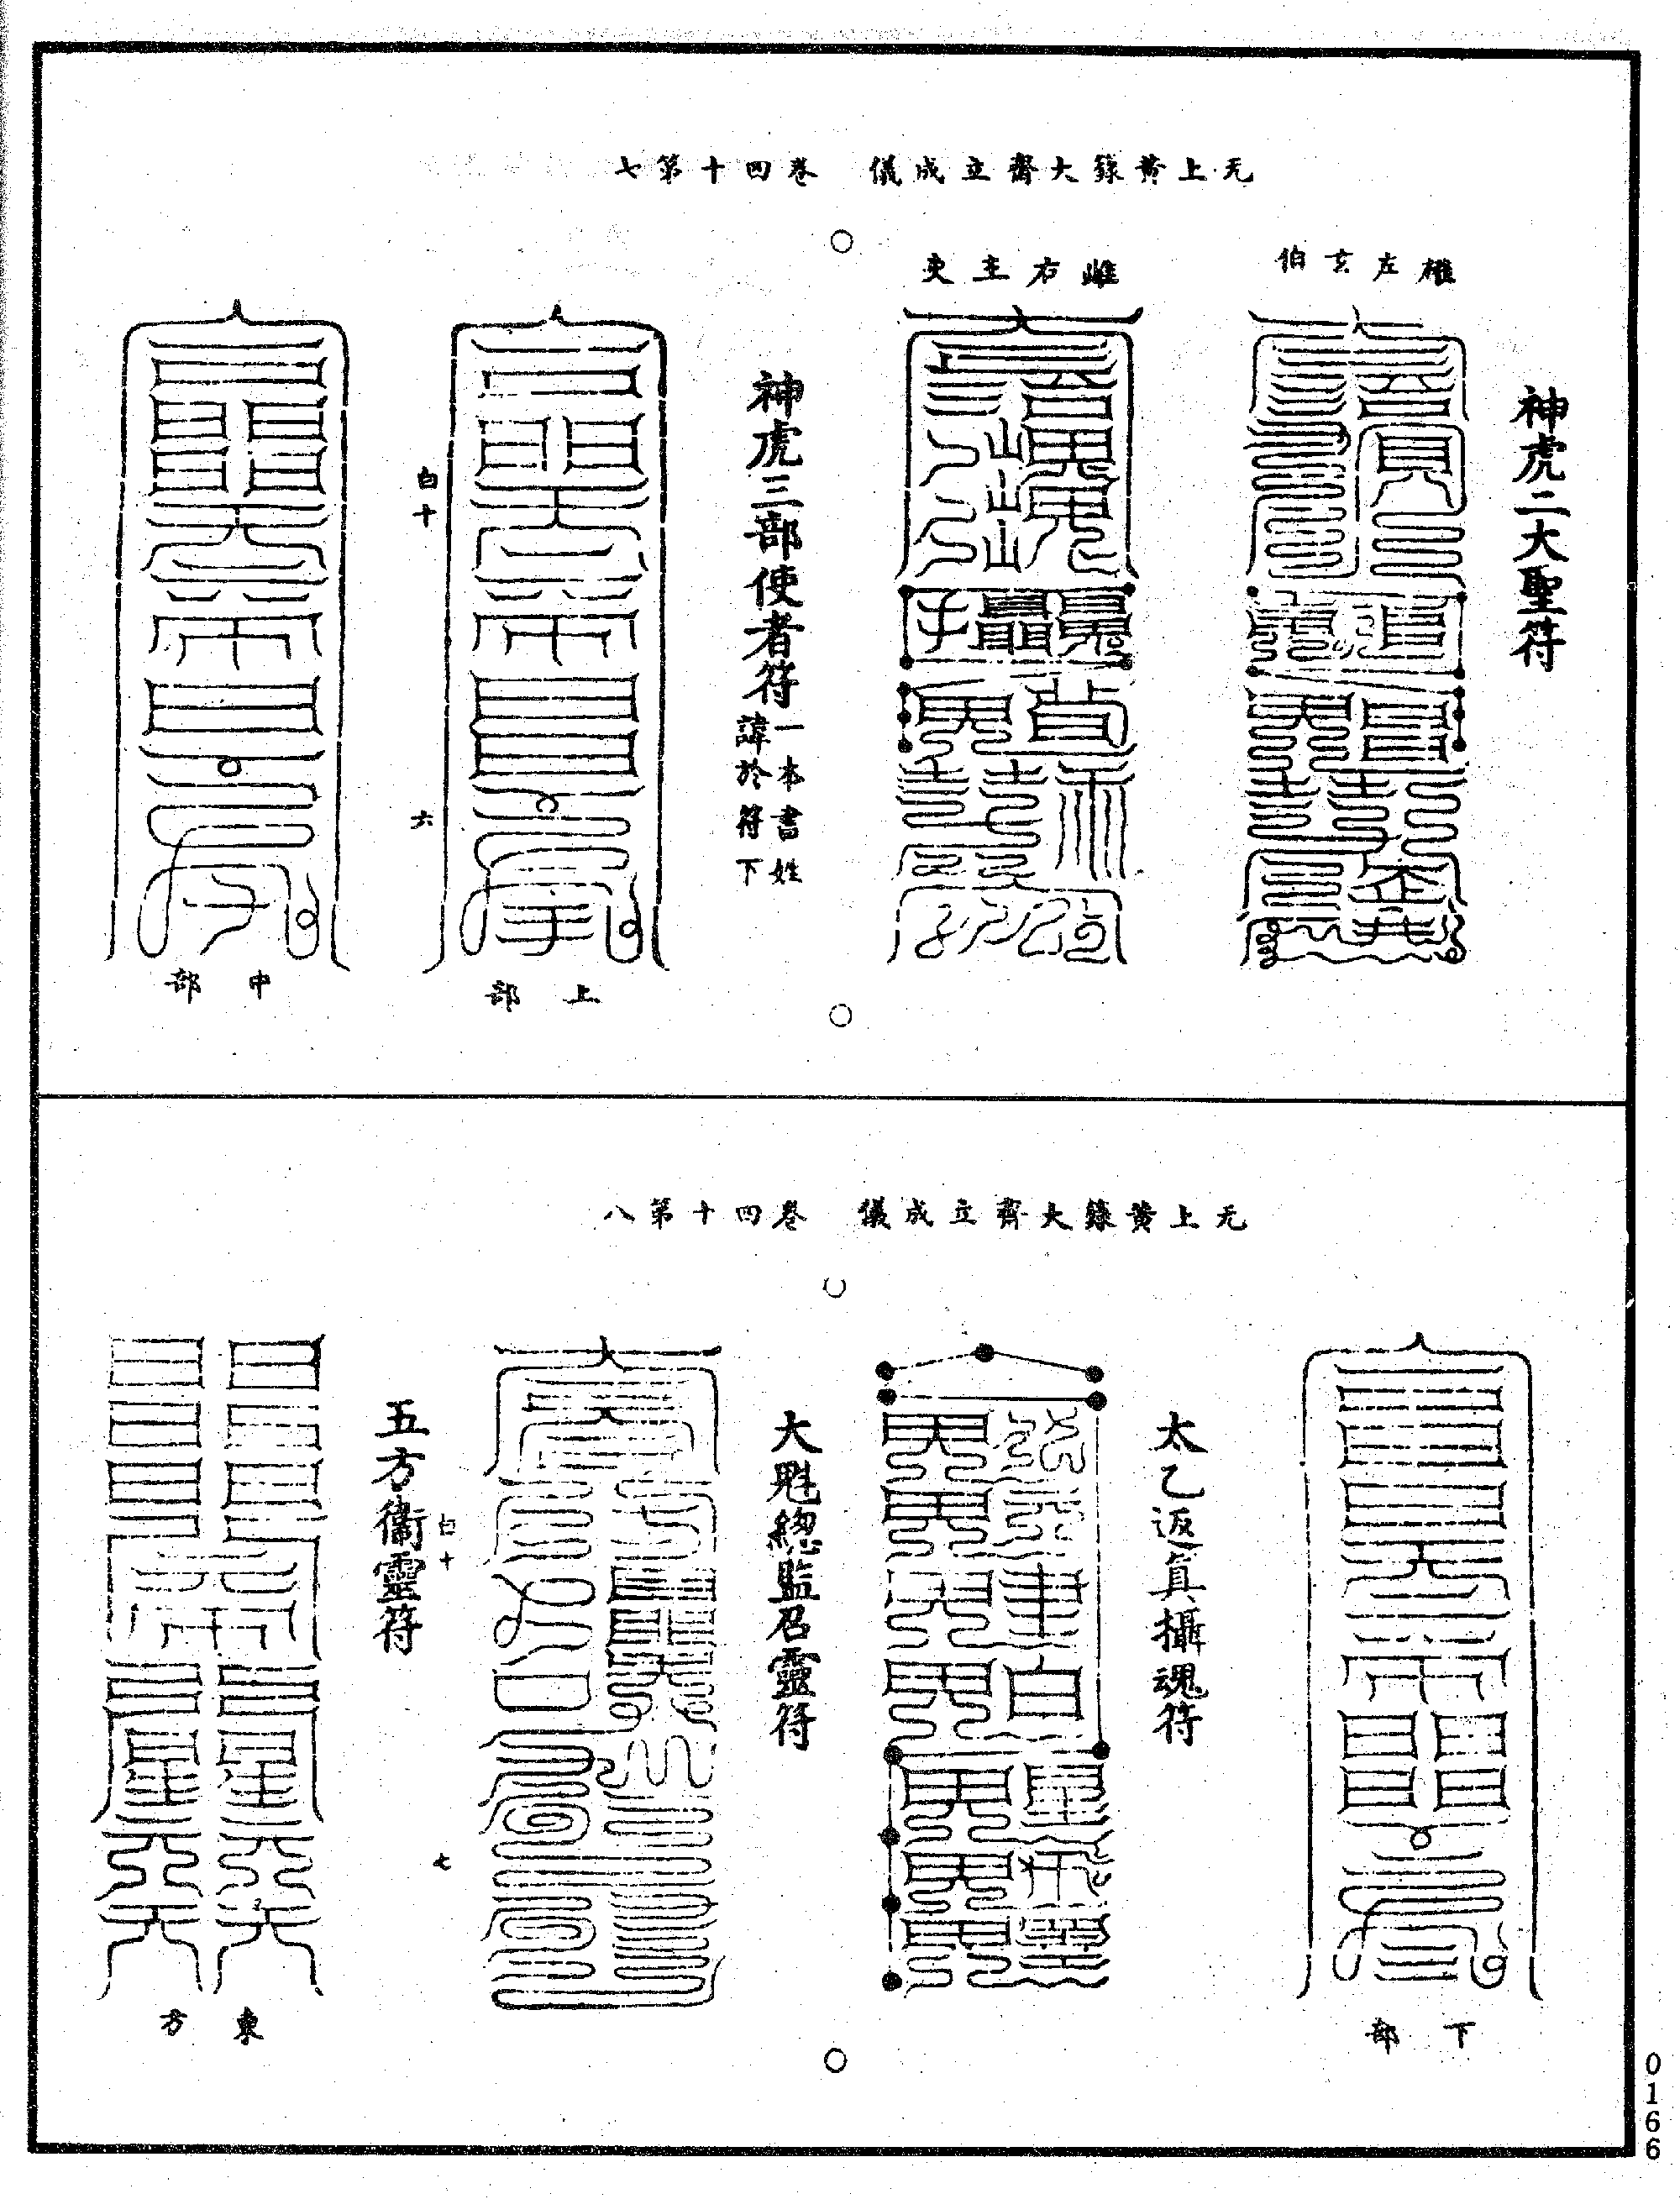 无上黄籙大齋立成儀　卷四十第七
神虎二大聖符
左玄伯
雌右主吏
神虎三部使者符
一本書姓
諱於符下
上部
白十
六
中部
无上黄籙大齋立成儀　卷四十第八
下部
太乙返真攝魂符
大魁總監召靈符
白十
七
五方衛靈符
東方
0166